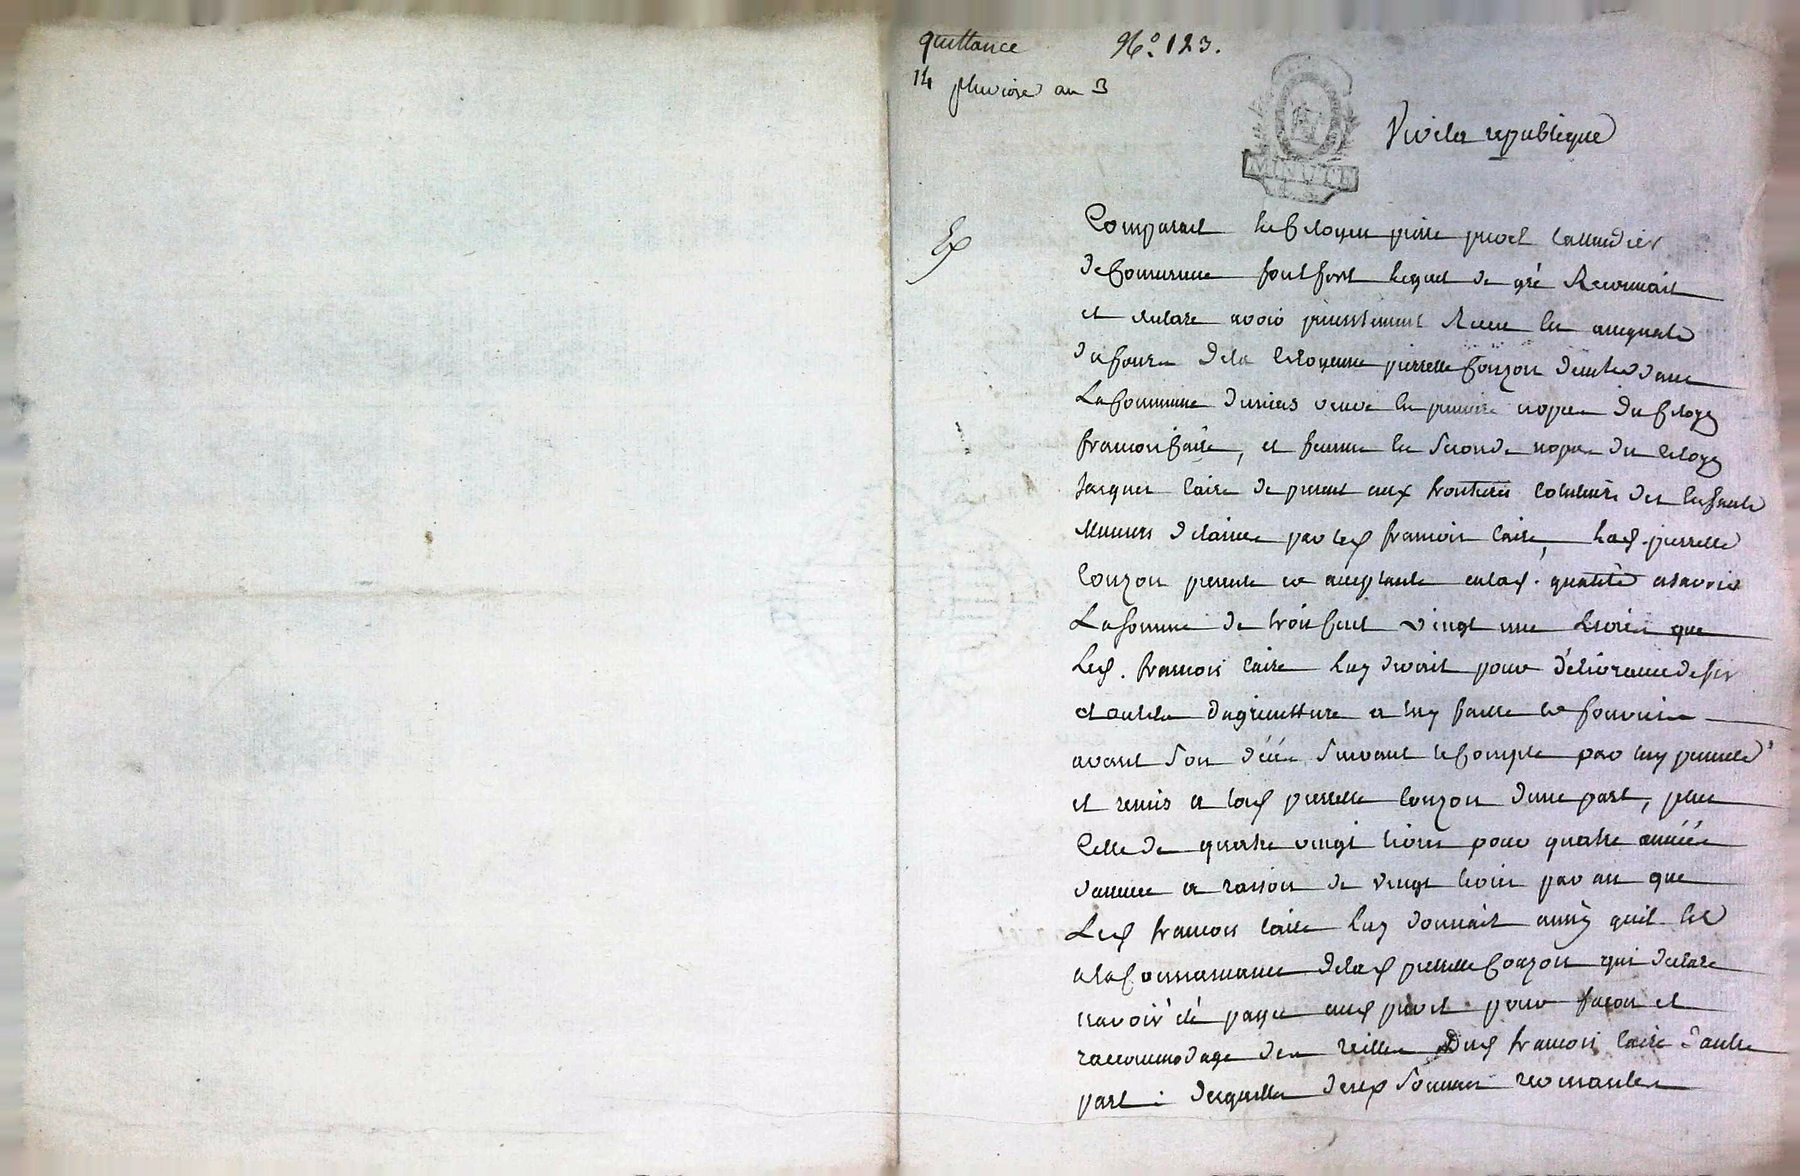 quittance N.° 123.
14 pluviose an 3
MINUTE
Vive la republique
Comparait le Citoyen pierre privet
de Commune font fort lequel de gré Reconnait
et declare avoir presentement Receu en
de la Citoyenne pierrette Couzon
La Commune veuve en nopces du Citoyen
francois Claire, et femme en seconde nopces du Citoyen
Jacques Claire de present aux frontieres des Enfants
mineurs par led francois Claire, lad. pierrette
Couzon presente et acceptante en lad. qualité a savoir
La somme de trois Cent vingt une Livres que
Led. francois Claire luy devait pour delivrance de fer
et outils dagriculture a luy faitte et fournie
avant son décés suivant le Compte par luy
et remis a lad pierrette Couzon dune part, plus
Celle de quatre vingt livres pour quatre années
a raison de vingt livres par an que
Led francois Claire luy donnait ainsy quil est
a la Connaissance de lad pierrette Couzon qui declare
navoir été payé aud privet pour façon et
raccommodage des reilles Dud francois Claire d'autre
part : desquelles deux sommes revenantes